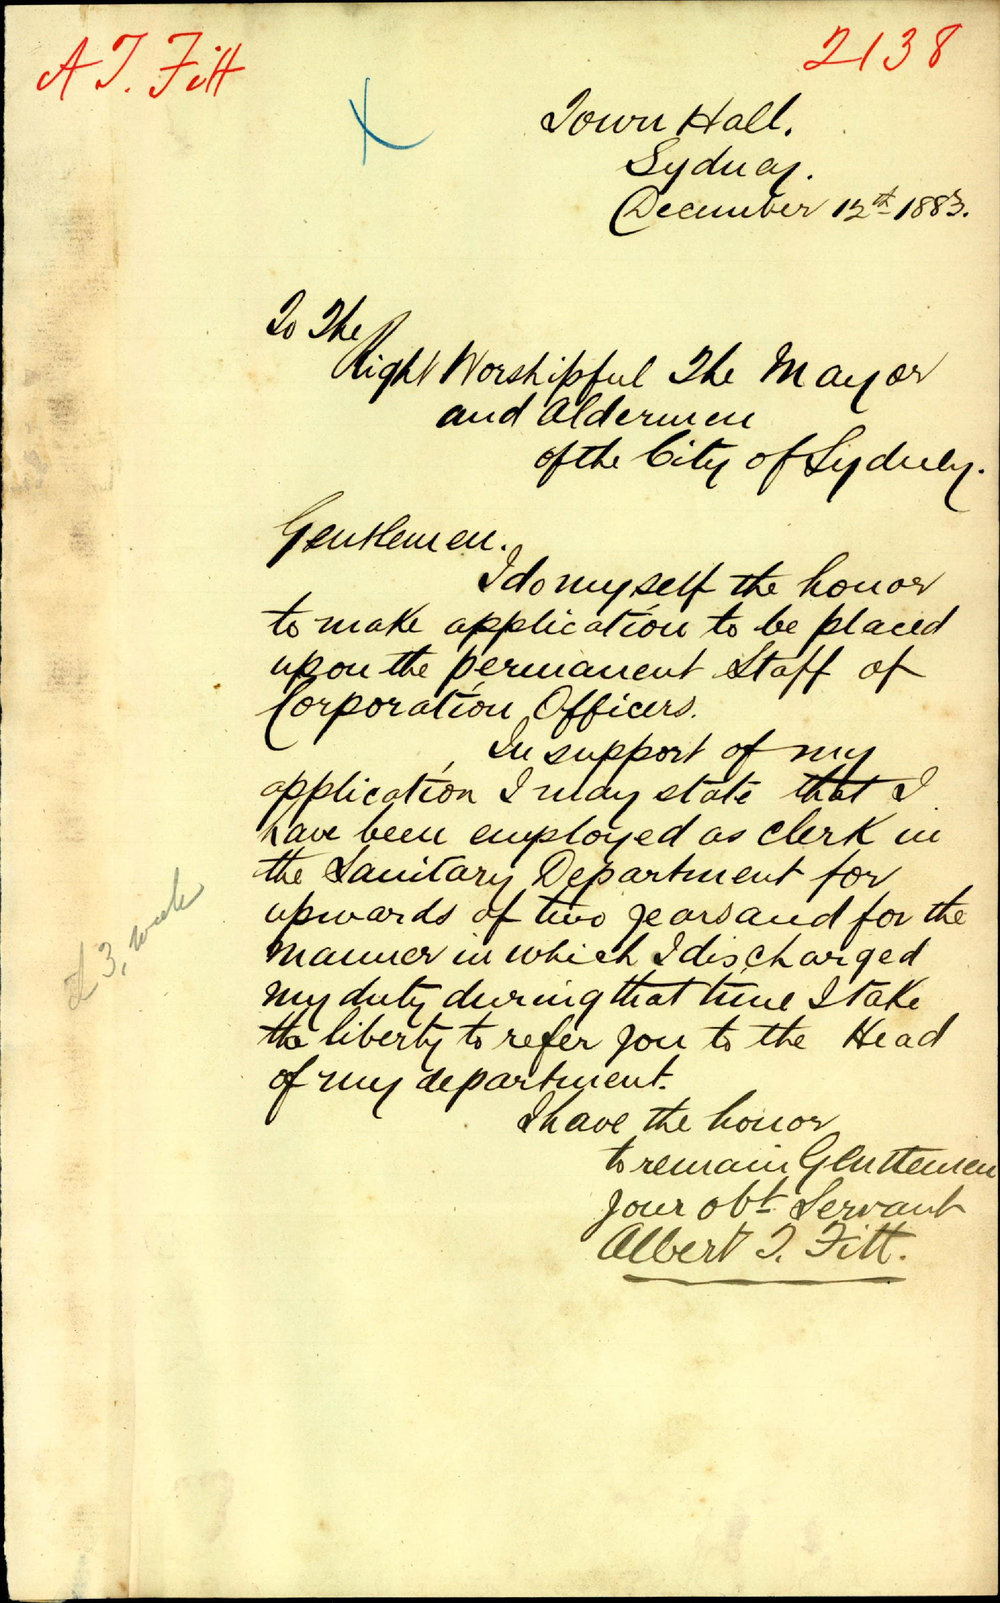 A T. Fitt
2138
Town Hall.
Sydney.
December 12th 1883.
To The
Right Worshipful The Mayor
and Aldermen
of the City of Sydney.
Gentlemen.
I do myself the honor
to make application to be placed
upon the permanent Staff of
Corporation Officers.
In support of my
application I may state that I
have been employed as clerk in
the Sanitary Department for
upwards of two years and for the
manner in which I discharged
my duty during that time I take
the liberty to refer you to the Head
of my department.
I have the honor
to remain Gentlemen
your obt Servant
Albert T. Fitt.
£3, week